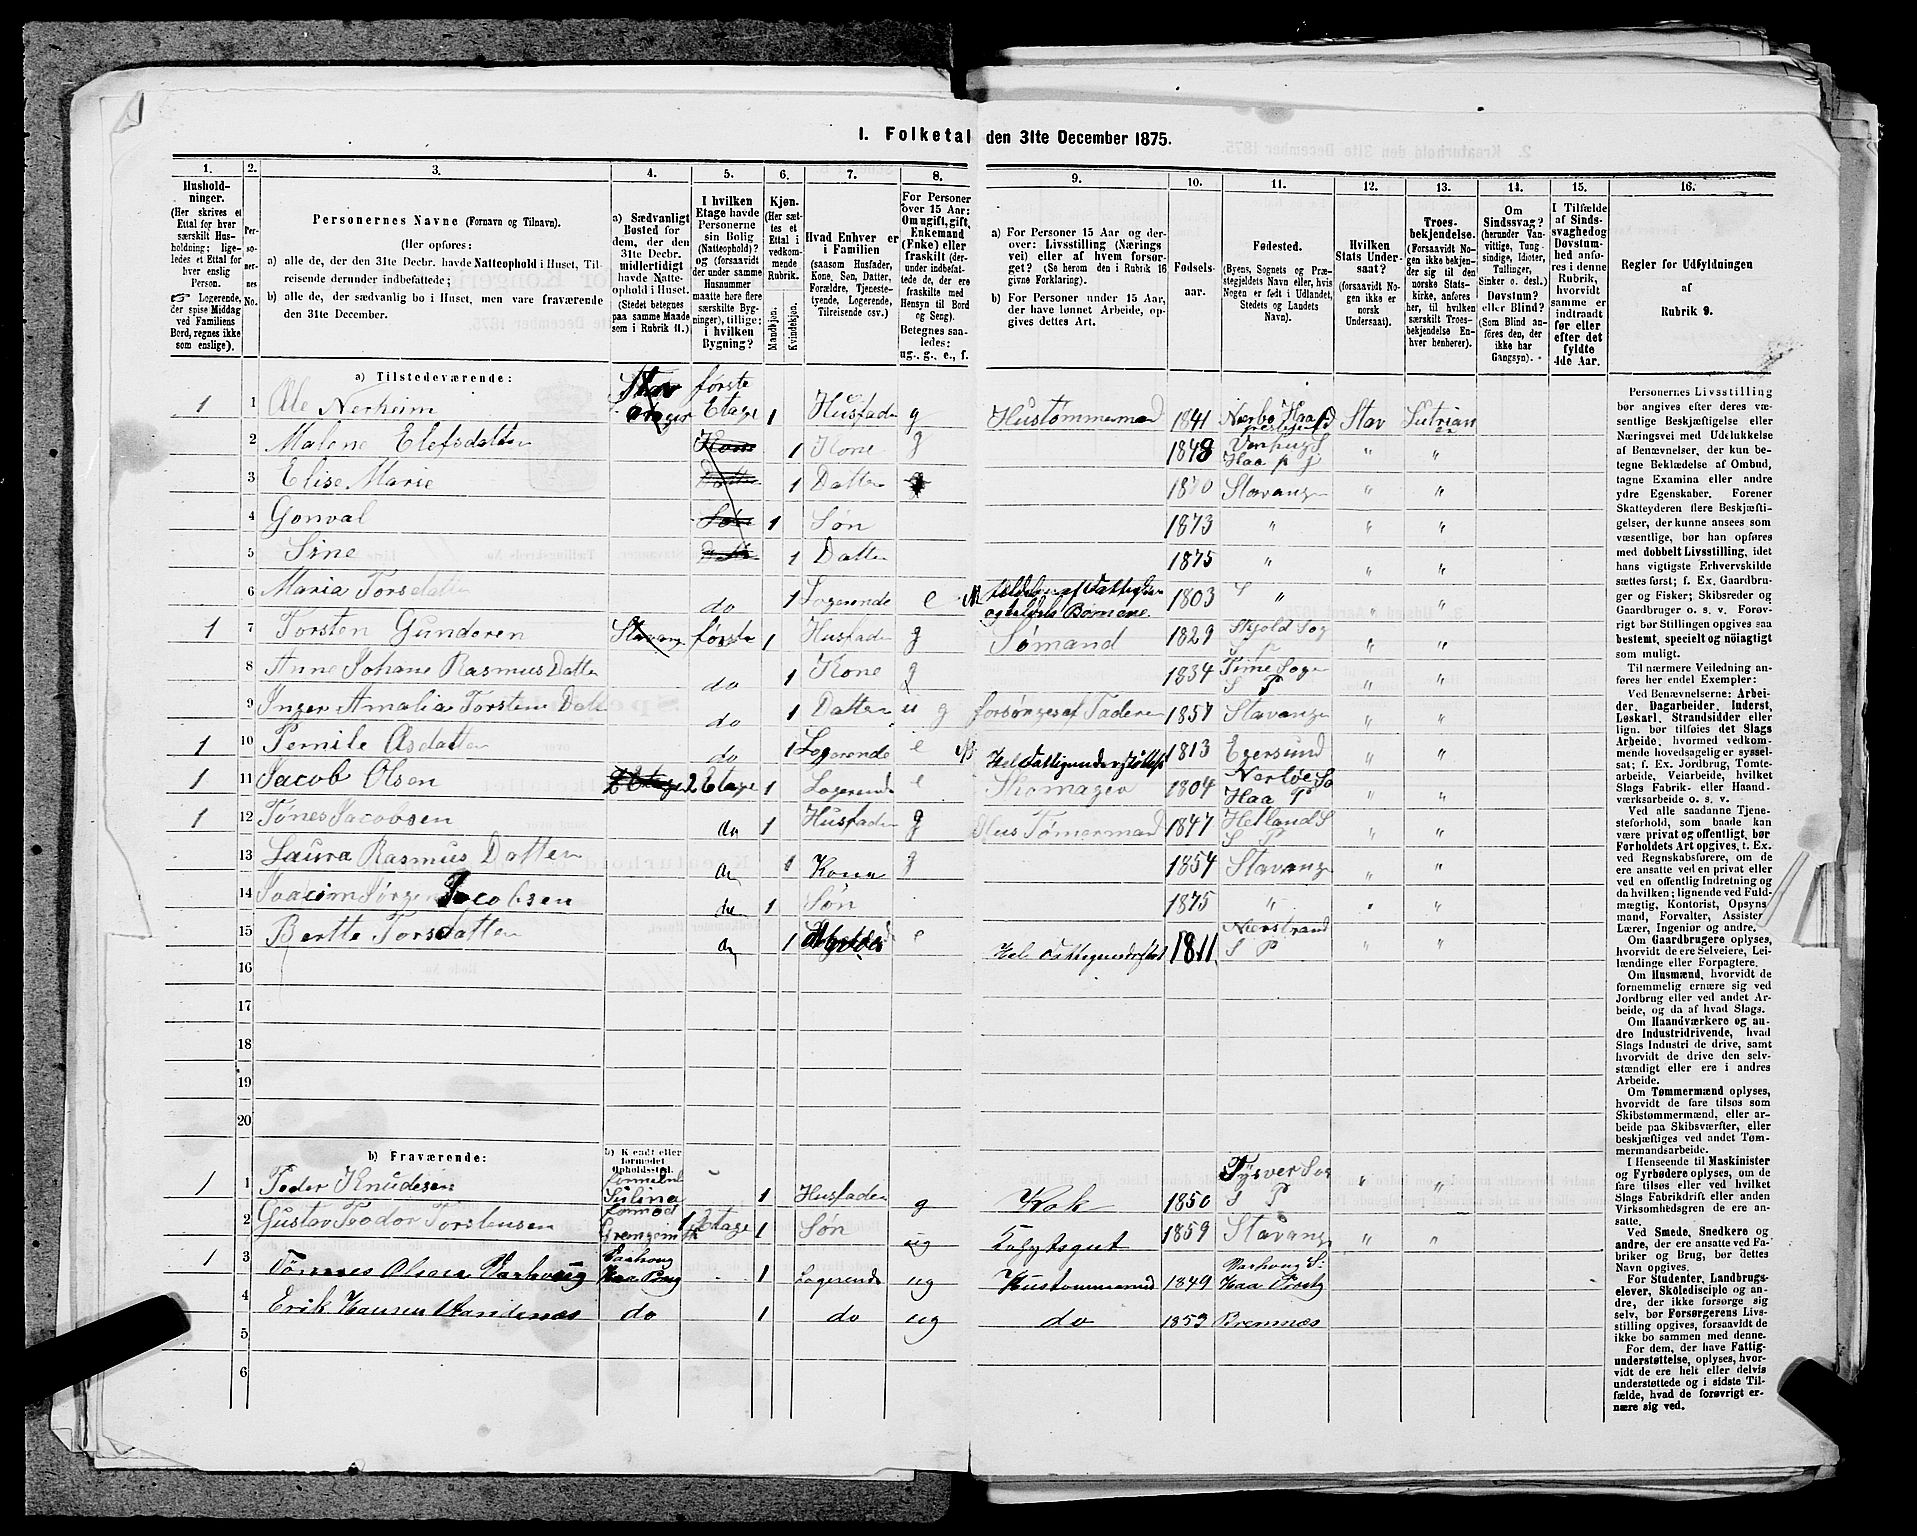 1. Folketal den 31te December 1875.
1. 2. 3. 4. 5. 6. 7. 8. 9. 10. 11. 12. 13. 14. 15. 16.
Husholdninger. (Her skrives et Ettal for hver særskilt Husholdning; ligeledes et Ettal for hver enslig Person. ☞ Logerende, der spise Middag ved Familiens Bord, regnes ikke som enslige).
Personernes No.
Personernes Navne (Fornavn og Tilnavn).
(Her opføres:
a) alle de, der den 31te Decbr. havde Natteophold i Huset, Tilreisende derunder indbefattede;
b) alle de, der sædvanlig bo i Huset, men vare fraværende den 31te December.
a) Sædvanligt Bosted for dem, der den 31te Decbr. midlertidigt havde Natteophold i Huset. (Stedet betegnes paa samme Maade som i Rubrik 11.)
I hvilken Etage havde Personerne sin Bolig (Natteophold)? og (forsaavidt der under samme Husnummer maatte høre flere særskilte Bygninger), tillige: i hvilken Bygning?
Kjøn. (Her sættes et Ettal i vedkommende Rubrik.) Mandkjøn. Kvindekjøn.
Hvad Enhver er i Familien (saasom Husfader, Kone, Søn, Datter, Forældre, Tjenestetyende, Logerende, Tilreisende osv.)
For Personer over 15 Aar: Om ugift, gift, Enkemand (Enke) eller fraskilt (derunder indbefattede de, der ere fraskilte med Hensyn til Bord og Seng). Betegnes saaledes: ug., g., e., f.
a) For Personer 15 Aar og derover: Livsstilling (Nærings vei) eller af hvem forsørget? (Se herom den i Rubrik 16 givne Forklaring).
b) For Personer under 15 Aar, der have lønnet Arbeide, opgives dettes Art.
Fødselsaar.
Fødested. (Byens, Sognets og Præstegjeldets Navn eller, hvis Nogen er født i Udlandet, Stedets og Landets Navn).
Hvilken Stats Undersaat? (forsaavidt Nogen ikke er norsk Undersaat).
Troesbekjendelse. (Forsaavidt Nogen ikke bekjender sig til den norske Statskirke, anføres her, til hvilken særskilt Troesbekjendelse Enhver henhører).
Om Sindssvag? (herunder Vanvittige, Tungsindige, Idioter, Tullinger, Sinker o. desl.) Døvstum? eller Blind? (Som Blind anføres den, der ikke har Gangsyn).
I Tilfælde af Sindssvaghed og Døvstumhed anføres i denne Rubrik, hvorvidt samme er indtraadt før eller efter det fyldte 4de Aar.
Regler for Udfyldningen af Rubrik 9.
a) Tilstedeværende:
1 1 Ole Nerheim Stavanger første Etage 1 Husfader g Hustømmermand 1841 Nærbø Haa Stav Lutrian
2 Malene Elefsdatter Kone 1 Kone g 1848 Haa p j " "
3 Elise Marie Datter 1 Datter 1870 Stavanger " "
4 Gonval Søn 1 Søn 1873 " " "
5 Sine 1 Datter 1875 " " "
6 Maria Torsdatter do 1 Logerende e 1803 " " "
1 7 Torsten Gunderen Stavang første 1 Husfader g Sømand 1829 Skjold Sog " "
8 Anne Johane Rasmus Datter do 1 Kone g 1834 Time Sogn S P " "
9 Inger Amalia Torsten Datt do 1 Datter u g forsørges af Faderen 1857 Stavanger " "
1 10 Pernile Asdatter do 1 Logerende e 1813 Egersund " "
1 11 Jacob Olsen 2 Etage 1 Logerende e Skomager 1804 Nærbøe So Haa P " "
1 12 Tønes Jacobsen do 1 Husfader g Hus Tømermand 1847 Hetland S S P " "
13 Laura Rasmus Datter do 1 Kone g 1854 Stavange " "
14 Joacim Jørgen Jacobsen do 1 Søn 1875 " " "
15 Berte Torsdatter do 1 e Hel Fattigunderstøt 1811 Nærstrand S P " "
16
17
18
19
20
b) Fraværende: b) Kjendt eller formodet Opholdssted.
1 1 Peder Knudesen Sulina 1 Husfader g Kok 1850 Tysver Sog S P " "
2 Gustav Teodor Torstensen formod 1 Etage 1 Søn ug 1859 Stavange " "
1 3 Tönnes Olsen Varhoug Varhoug Haa 1 Logerende ug Hustømmermand 1849 Varhoug S. Haa
4 Erik Hansen do 1 do ug do 1853 Bremnæs
5
6
Personernes Livsstilling bør angives efter deres væsentlige Beskjæftigelse eller Næringsvei med Udelukkelse af Benævnelser, der kun betegne Beklædelse af Ombud, tagne Examina eller andre ydre Egenskaber. Forener Skatteyderen flere Beskjæftigelser, der kunne ansees som væsentlige, bør han opføres med dobbelt Livsstilling, idet hans vigtigste Erhvervskilde sættes først; f. Ex. Gaardbruger og Fisker; Skibsreder og Gaardbruger o. s. v. Forøvrigt bør Stillingen opgives saa bestemt, specielt og nøiagtigt som muligt.
Til nærmere Veiledning anføres her endel Exempler:
Ved Benævnelserne: Arbeider, Dagarbeider, Inderst, Løskarl, Strandsidder eller lign. bør tilføies det Slags Arbeide, hvormed vedkommende hovedsagelig er sysselsat; f. Ex. Jordbrug, Tomtearbeide, Veiarbeide, hvilket Slags Fabrik- eller Haandværksarbeide o. s. v.
Ved alle saadanne Tjenesteforhold, som baade kan være privat og offentligt, bør Forholdets Art opgives, t. Ex. ved Regnskabsførere, om de ere ansatte ved en privat eller ved en offentlig Indretning og da hvilken; lignende ved Fuldmægtig, Kontorist, Opsynsmand, Forvalter, Assistent, Lærer, Ingeniør og andre.
Om Gaardbrugere oplyses, hvorvidt de ere Selveiere, Leilændinge eller Forpagtere.
Om Husmænd, hvorvidt de fornemmelig ernære sig ved Jordbrug eller ved andet Arbeide, og da af hvad Slags.
Om Haandværkere og andre Industridrivende, hvad Slags Industri de drive, samt hvorvidt de drive den selvstændigt eller ere i andres Arbeide.
Om Tømmermænd oplyses, hvorvidt de fare tilsøs som Skibstømmermænd, eller arbeide paa Skibsværfter, eller beskjæftiges ved andet Tømmermandsarbeide.
I Henseende til Maskinister og Fyrbødere oplyses, om de fare tilsøs eller ved hvilket Slags Fabrikdrift eller anden Virksomhedsgren de ere ansatte.
Ved Smede, Snedkere og andre, der ere ansatte ved Fabriker og Brug, bør dettes Navn opgives.
For Studenter, Landbrugselever, Skoledisciple og andre, der ikke forsørge sig selv, bør Forsørgerens Livsstilling opgives, forsaavidt de ikke bo sammen med denne.
For dem, der have Fattigunderstøttelse, oplyses, hvorvidt de ere helt eller delvis understøttede og i sidste Tilfælde, hvad de forøvrigt ernære sig ved.